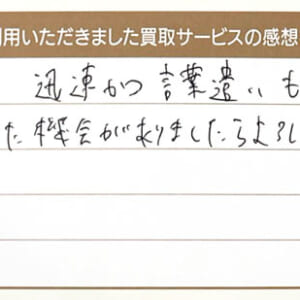 用いただきました買取サービスの感想
迅速かつ言葉遣いも
た機会がありましたらよろし